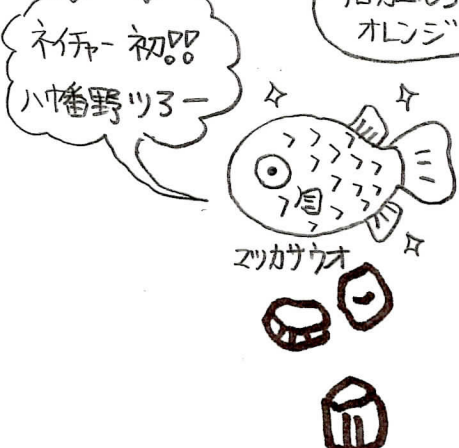 ネイチャー 初!!
八幡野ツアー
オレンジ
マツカサウオ